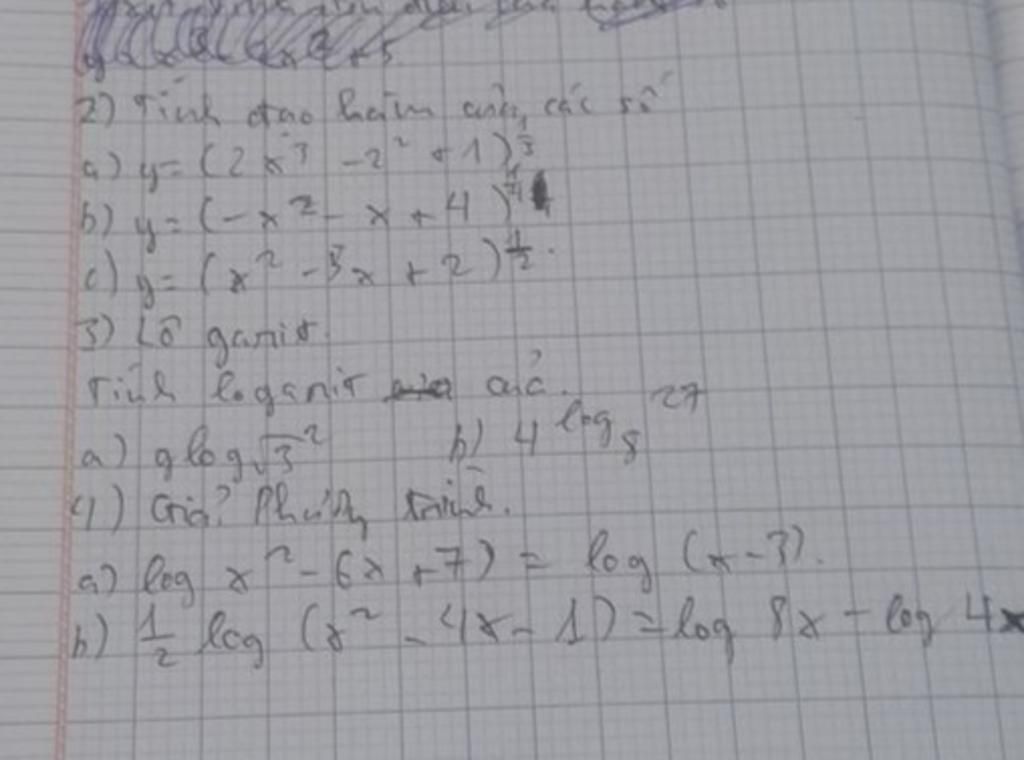 2) Tính đạo hàm của các số
a) y = (2x³ - 2² + 1)^⅓
b) y = (-x² - x + 4)^¼
c) y = (x² - 3x + 2)^½.
3) Lô garit.
Tính logarit các.
a) 9 log √3 ² b) 4 log₈ 27
4) Giải Phương trình.
a) log x² - 6x + 7) = log (x - 3).
b) ½ log (x² - 4x - 1) = log 8x - log 4x